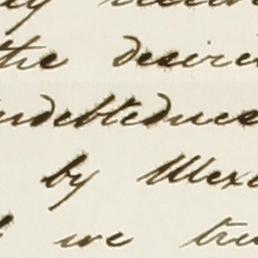 the desire
indebtedness
by Mexi
we tru